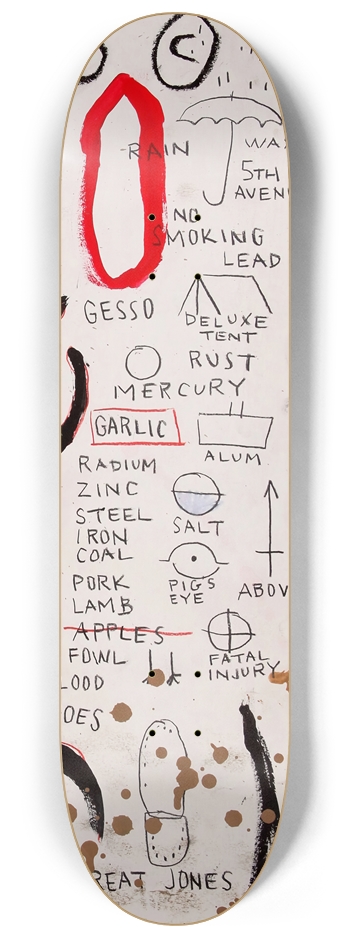 RAIN
WA
5TH
AVEN
NO
SMOKING
LEAD
GESSO
DELUXE
TENT
RUST
MERCURY
GARLIC
ALUM
RADIUM
ZINC
STEEL
IRON
COAL
SALT
PORK
LAMB
PIGS
EYE
ABOV
APPLES
FOWL
FATAL
INJURY
OOD
OES
REAT JONES